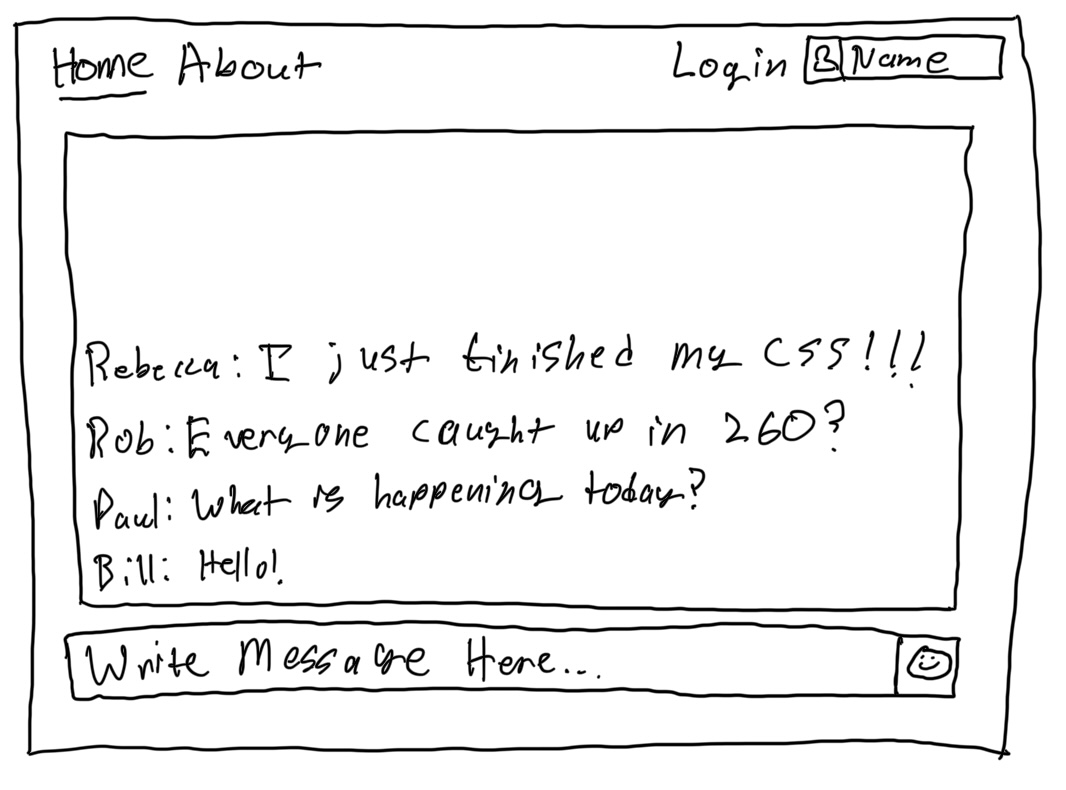 Home About Login Name
Rebecca: I just finished my CSS!!!
Rob: Everyone caught up in 260?
Paul: What is happening today?
Bill: Hello!
Write Message Here...